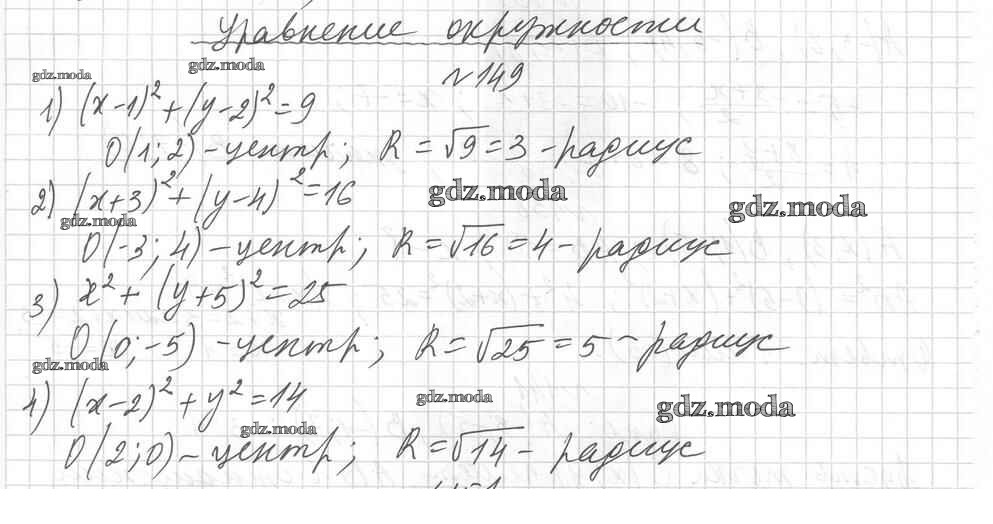 Уравнение окружности
gdz.moda
gdz.moda
№149
1) (x-1)²+(y-2)²=9
O(1;2)-центр; R=√9=3-радиус
2) (x+3)²+(y-4)²=16
gdz.moda
gdz.moda
gdz.moda
O(-3;4)-центр; R=√16=4-радиус
3) x²+(y+5)²=25
O(0;-5)-центр; R=√25=5-радиус
gdz.moda
4) (x-2)²+y²=14
gdz.moda
gdz.moda
gdz.moda
O(2;0)-центр; R=√14-радиус